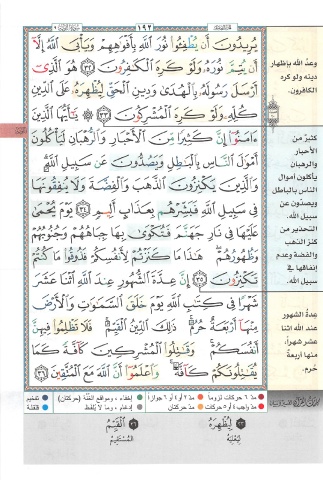 ١٩٢
يُرِيدُونَ أَن يُطْفِـُٔوا۟ نُورَ ٱللَّهِ بِأَفْوَٰهِهِمْ وَيَأْبَى ٱللَّهُ إِلَّآ
أَن يُتِمَّ نُورَهُۥ وَلَوْ كَرِهَ ٱلْكَـٰفِرُونَ ٣٢ هُوَ ٱلَّذِىٓ
أَرْسَلَ رَسُولَهُۥ بِٱلْهُدَىٰ وَدِينِ ٱلْحَقِّ لِيُظْهِرَهُۥ عَلَى ٱلدِّينِ
كُلِّهِۦ وَلَوْ كَرِهَ ٱلْمُشْرِكُونَ ٣٣ ۞ يَـٰٓأَيُّهَا ٱلَّذِينَ
ءَامَنُوٓا۟ إِنَّ كَثِيرًا مِّنَ ٱلْأَحْبَارِ وَٱلرُّهْبَانِ لَيَأْكُلُونَ
أَمْوَٰلَ ٱلنَّاسِ بِٱلْبَـٰطِلِ وَيَصُدُّونَ عَن سَبِيلِ ٱللَّهِ ۗ
وَٱلَّذِينَ يَكْنِزُونَ ٱلذَّهَبَ وَٱلْفِضَّةَ وَلَا يُنفِقُونَهَا
فِى سَبِيلِ ٱللَّهِ فَبَشِّرْهُم بِعَذَابٍ أَلِيمٍ ٣٤ يَوْمَ يُحْمَىٰ
عَلَيْهَا فِى نَارِ جَهَنَّمَ فَتُكْوَىٰ بِهَا جِبَاهُهُمْ وَجُنُوبُهُمْ
وَظُهُورُهُمْ ۖ هَـٰذَا مَا كَنَزْتُمْ لِأَنفُسِكُمْ فَذُوقُوا۟ مَا كُنتُمْ
تَكْنِزُونَ ٣٥ إِنَّ عِدَّةَ ٱلشُّهُورِ عِندَ ٱللَّهِ ٱثْنَا عَشَرَ
شَهْرًا فِى كِتَـٰبِ ٱللَّهِ يَوْمَ خَلَقَ ٱلسَّمَـٰوَٰتِ وَٱلْأَرْضَ
مِنْهَآ أَرْبَعَةٌ حُرُمٌ ۚ ذَٰلِكَ ٱلدِّينُ ٱلْقَيِّمُ ۚ فَلَا تَظْلِمُوا۟ فِيهِنَّ
أَنفُسَكُمْ ۚ وَقَـٰتِلُوا۟ ٱلْمُشْرِكِينَ كَآفَّةً كَمَا
يُقَـٰتِلُونَكُمْ كَآفَّةً ۚ وَٱعْلَمُوٓا۟ أَنَّ ٱللَّهَ مَعَ ٱلْمُتَّقِينَ ٣٦
وعدُ الله بإظهار
دينه ولو كره
الكافرون.
كثيرٌ من
الأحبار
والرهبان
يأكلون أموال
الناس بالباطل
ويصدون عن
سبيل الله.
التحذير من
كنز الذهب
والفضة وعدم
إنفاقها في
سبيل الله.
عِدةُ الشهور
عند الله اثنا
عشر شهراً،
منها أربعةٌ
حُرم.
مدّ ٦ حركات لزوماً
مدّ ٢ أو ٤ أو ٦ جوازاً
إخفاء، ومواقع الغُنَّة (حركتان)
تفخيم
مدّ حركتان
إدغام، وما لا يُلفظ
قلقلة
٣٣ لِيُظْهِرَهُ
لِيُعْلِيَهُ
٣٦ ٱلْقَيِّمُ
المُسْتَقِيمُ